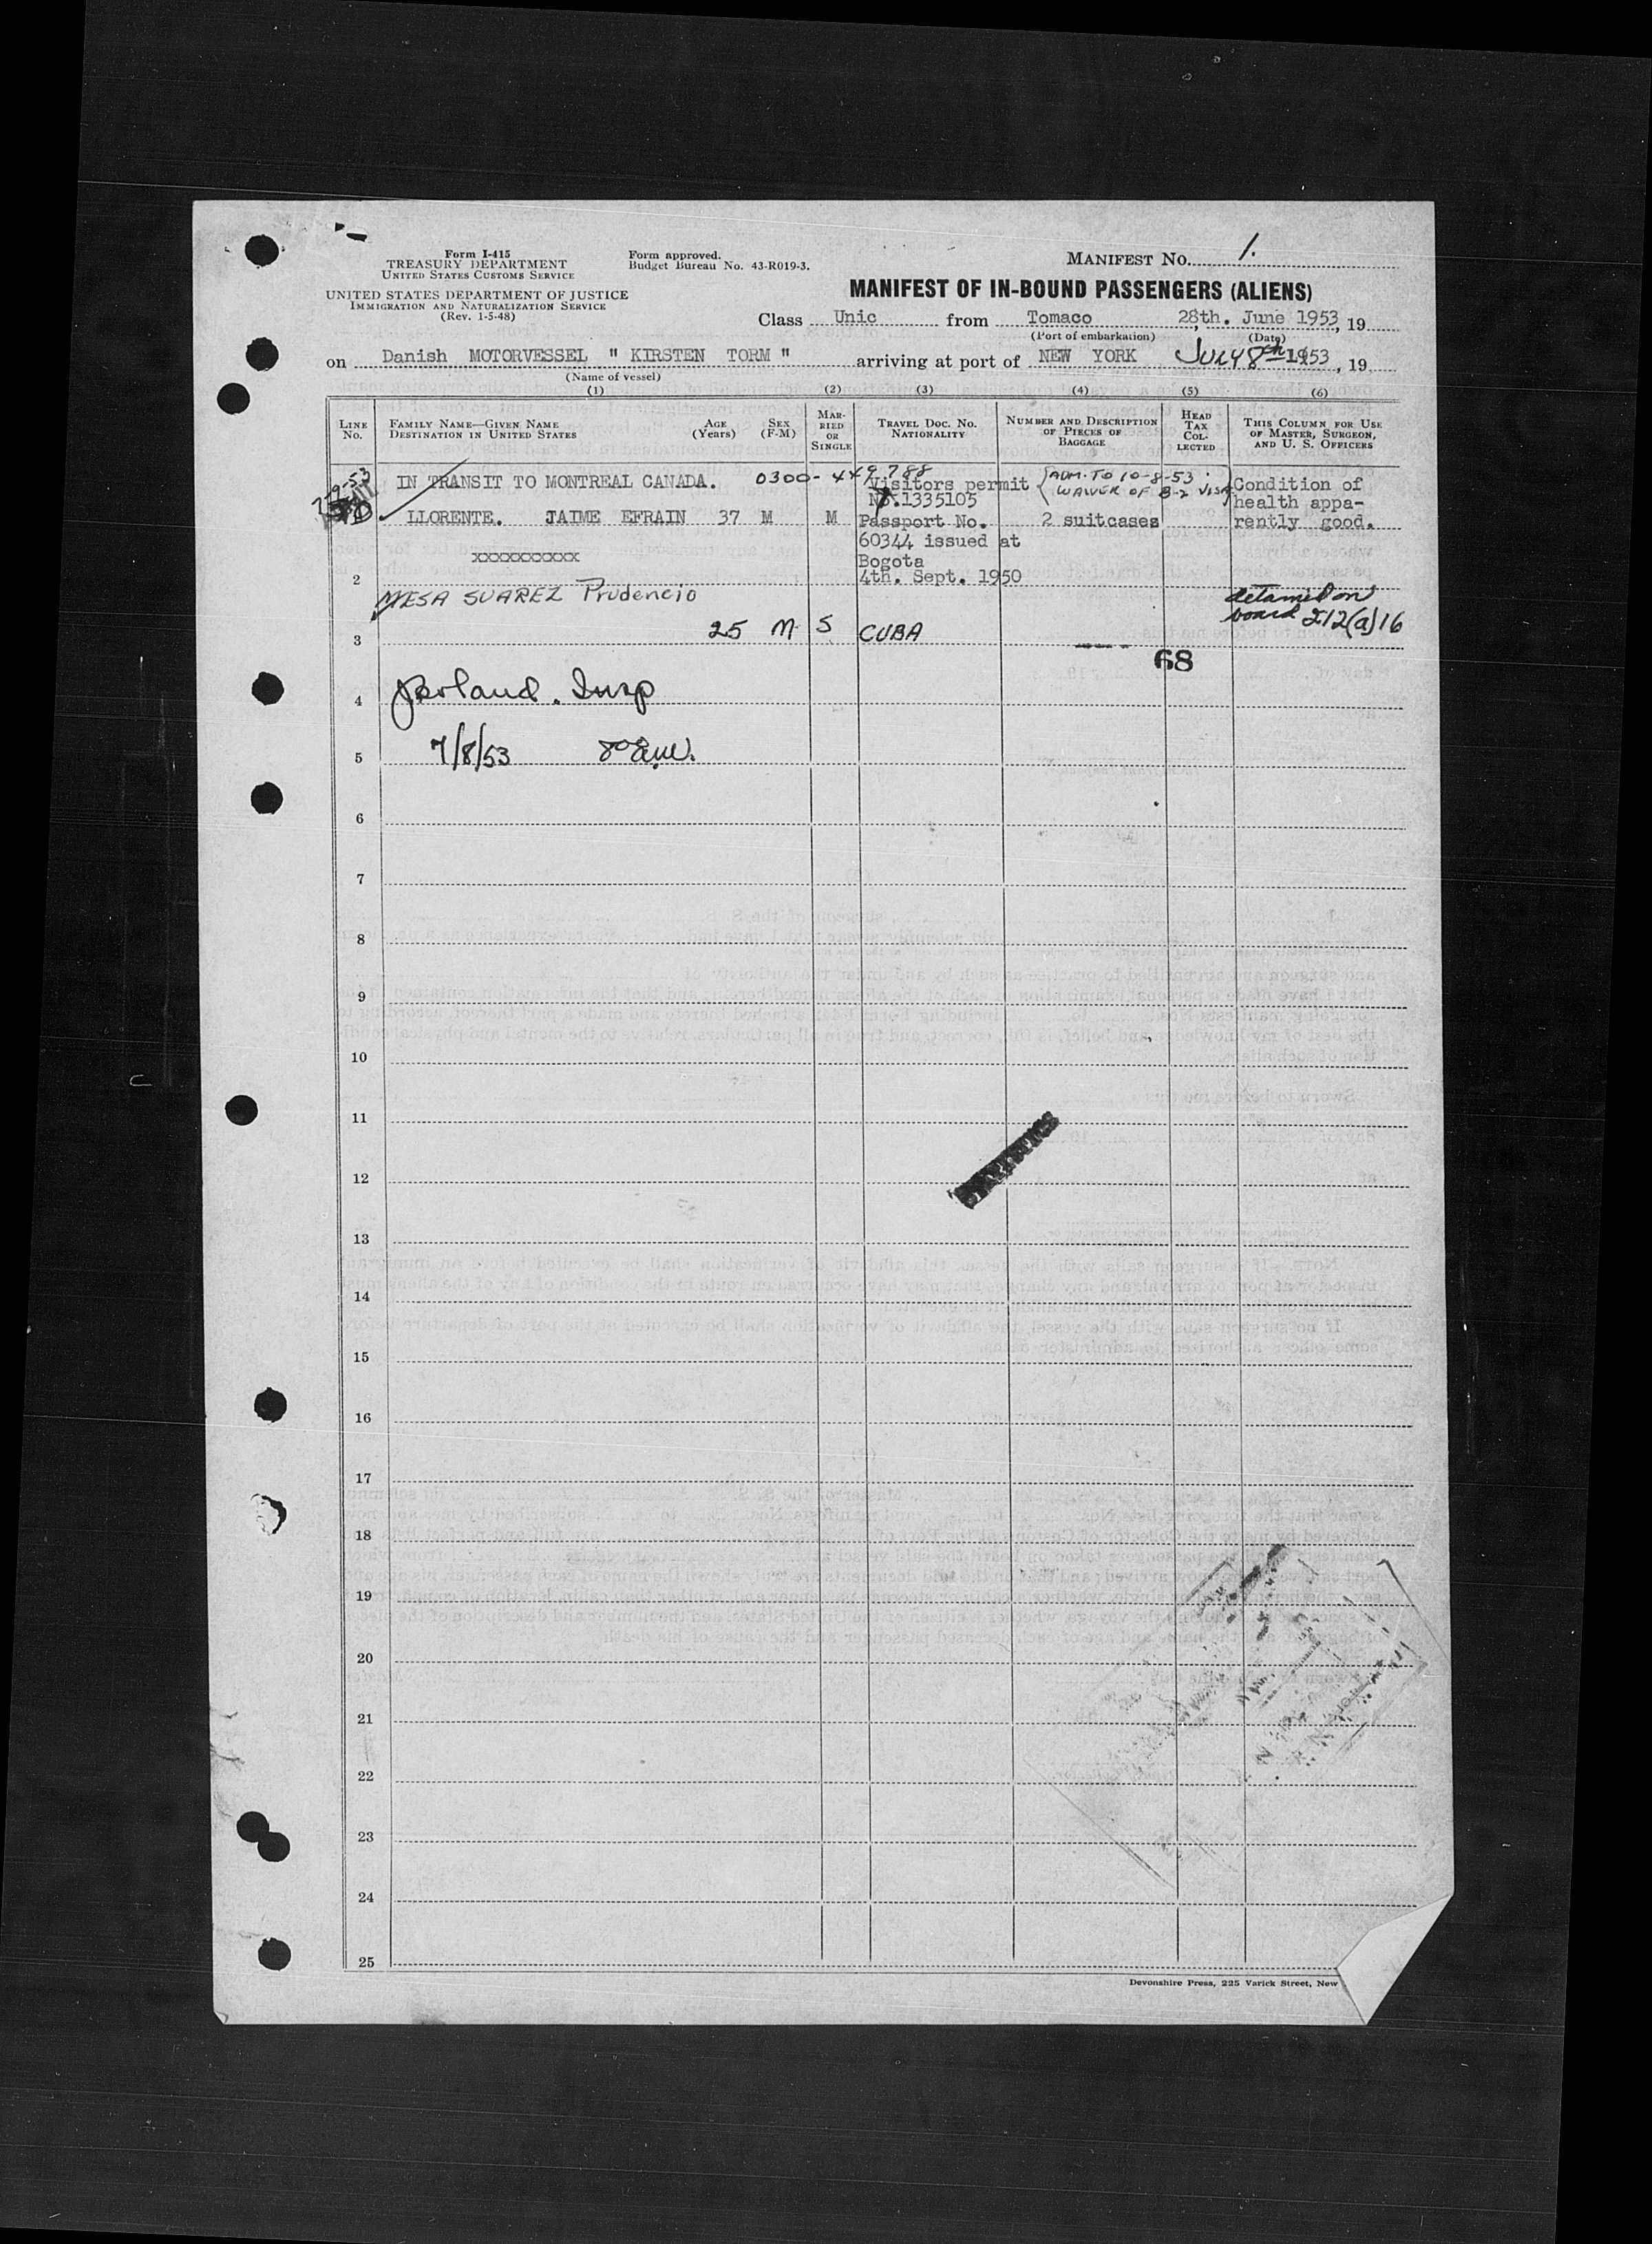 Form I-415
TREASURY DEPARTMENT
UNITED STATES CUSTOMS SERVICE
UNITED STATES DEPARTMENT OF JUSTICE
IMMIGRATION AND NATURALIZATION SERVICE
(Rev. 1-5-48)
Form approved.
Budget Bureau No. 43-R019-3.
MANIFEST No. 1.
MANIFEST OF IN-BOUND PASSENGERS (ALIENS)
Class Unic from Tomaco 28th. June 1953, 19
(Port of embarkation) (Date)
on Danish MOTORVESSEL " KIRSTEN TORM " arriving at port of NEW YORK JULY 8th 1953, 19
(Name of vessel)
(1) (2) (3) (4) (5) (6)
LINE No.
FAMILY NAME—GIVEN NAME DESTINATION IN UNITED STATES
AGE (Years)
SEX (F-M)
MARRIED OR SINGLE
TRAVEL DOC. No. NATIONALITY
NUMBER AND DESCRIPTION OF PIECES OF BAGGAGE
HEAD TAX COLLECTED
THIS COLUMN FOR USE OF MASTER, SURGEON, AND U. S. OFFICERS
7-9-53
IN TRANSIT TO MONTREAL CANADA. 0300-449788
Visitors permit
No.1335105
ADM. TO 10-8-53
WAIVER OF B-2 VISA
Condition of
health appa-
rently good.
LLORENTE. JAIME EFRAIN 37 M M Passport No. 2 suitcases
60344 issued at
xxxxxxxxxxx
Bogota
2 4th. Sept. 1950
MESA SUAREZ Prudencio
detained on
board 212(a)16
3 25 M S CUBA
68
4 Insp
5 7/8/53
6
7
8
9
10
11
12
13
14
15
16
17
18
19
20
21
22
23
24
25
Devonshire Press, 225 Varick Street, New